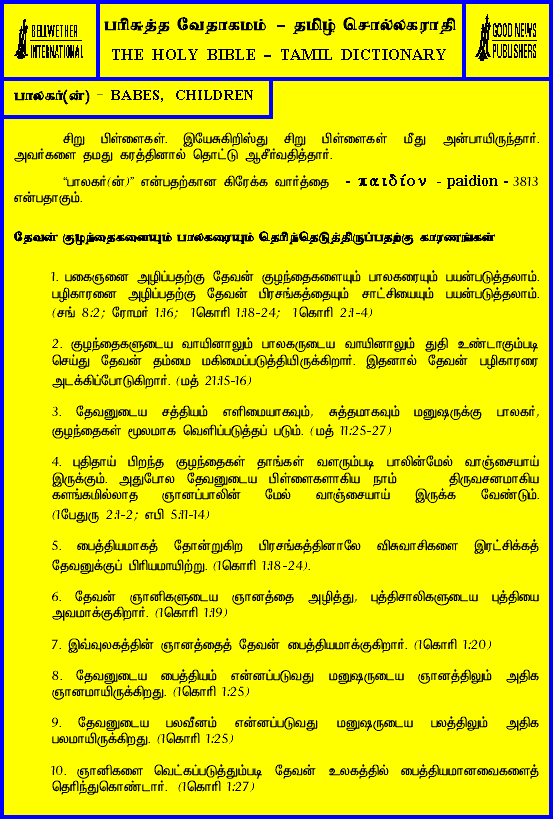 BELLWETHER
INTERNATIONAL
பரிசுத்த வேதாகமம் – தமிழ் சொல்லகராதி
THE HOLY BIBLE – TAMIL DICTIONARY
GOOD NEWS
PUBLISHERS
பாலகர்(ன்) – BABES, CHILDREN
சிறு பிள்ளைகள். இயேசுகிறிஸ்து சிறு பிள்ளைகள் மீது அன்பாயிருந்தார்.
அவர்களை தமது கரத்தினால் தொட்டு ஆசீர்வதித்தார்.
“பாலகர்(ன்)” என்பதற்கான கிரேக்க வார்த்தை - παιδίον - paidion - 3813
என்பதாகும்.
தேவன் குழந்தைகளையும் பாலகரையும் தெரிந்தெடுத்திருப்பதற்கு காரணங்கள்
1. பகைஞனை அழிப்பதற்கு தேவன் குழந்தைகளையும் பாலகரையும் பயன்படுத்தலாம்.
பழிகாரனை அழிப்பதற்கு தேவன் பிரசங்கத்தையும் சாட்சியையும் பயன்படுத்தலாம்.
(சங் 8:2; ரோமர் 1:16; 1கொரி 1:18-24; 1கொரி 2:1-4)
2. குழந்தைகளுடைய வாயினாலும் பாலகருடைய வாயினாலும் துதி உண்டாகும்படி
செய்து தேவன் தம்மை மகிமைப்படுத்தியிருக்கிறார். இதனால் தேவன் பழிகாரரை
அடக்கிப்போடுகிறார். (மத் 21:15-16)
3. தேவனுடைய சத்தியம் எளிமையாகவும், சுத்தமாகவும் மனுஷருக்கு பாலகர்,
குழந்தைகள் மூலமாக வெளிப்படுத்தப் படும். (மத் 11:25-27)
4. புதிதாய் பிறந்த குழந்தைகள் தாங்கள் வளரும்படி பாலின்மேல் வாஞ்சையாய்
இருக்கும். அதுபோல தேவனுடைய பிள்ளைகளாகிய நாம் திருவசனமாகிய
களங்கமில்லாத ஞானப்பாலின் மேல் வாஞ்சையாய் இருக்க வேண்டும்.
(1பேதுரு 2:1-2; எபி 5:11-14)
5. பைத்தியமாகத் தோன்றுகிற பிரசங்கத்தினாலே விசுவாசிகளை இரட்சிக்கத்
தேவனுக்குப் பிரியமாயிற்று. (1கொரி 1:18-24).
6. தேவன் ஞானிகளுடைய ஞானத்தை அழித்து, புத்திசாலிகளுடைய புத்தியை
அவமாக்குகிறார். (1கொரி 1:19)
7. இவ்வுலகத்தின் ஞானத்தைத் தேவன் பைத்தியமாக்குகிறார். (1கொரி 1:20)
8. தேவனுடைய பைத்தியம் என்னப்படுவது மனுஷருடைய ஞானத்திலும் அதிக
ஞானமாயிருக்கிறது. (1கொரி 1:25)
9. தேவனுடைய பலவீனம் என்னப்படுவது மனுஷருடைய பலத்திலும் அதிக
பலமாயிருக்கிறது. (1கொரி 1:25)
10. ஞானிகளை வெட்கப்படுத்தும்படி தேவன் உலகத்தில் பைத்தியமானவைகளைத்
தெரிந்துகொண்டார். (1கொரி 1:27)